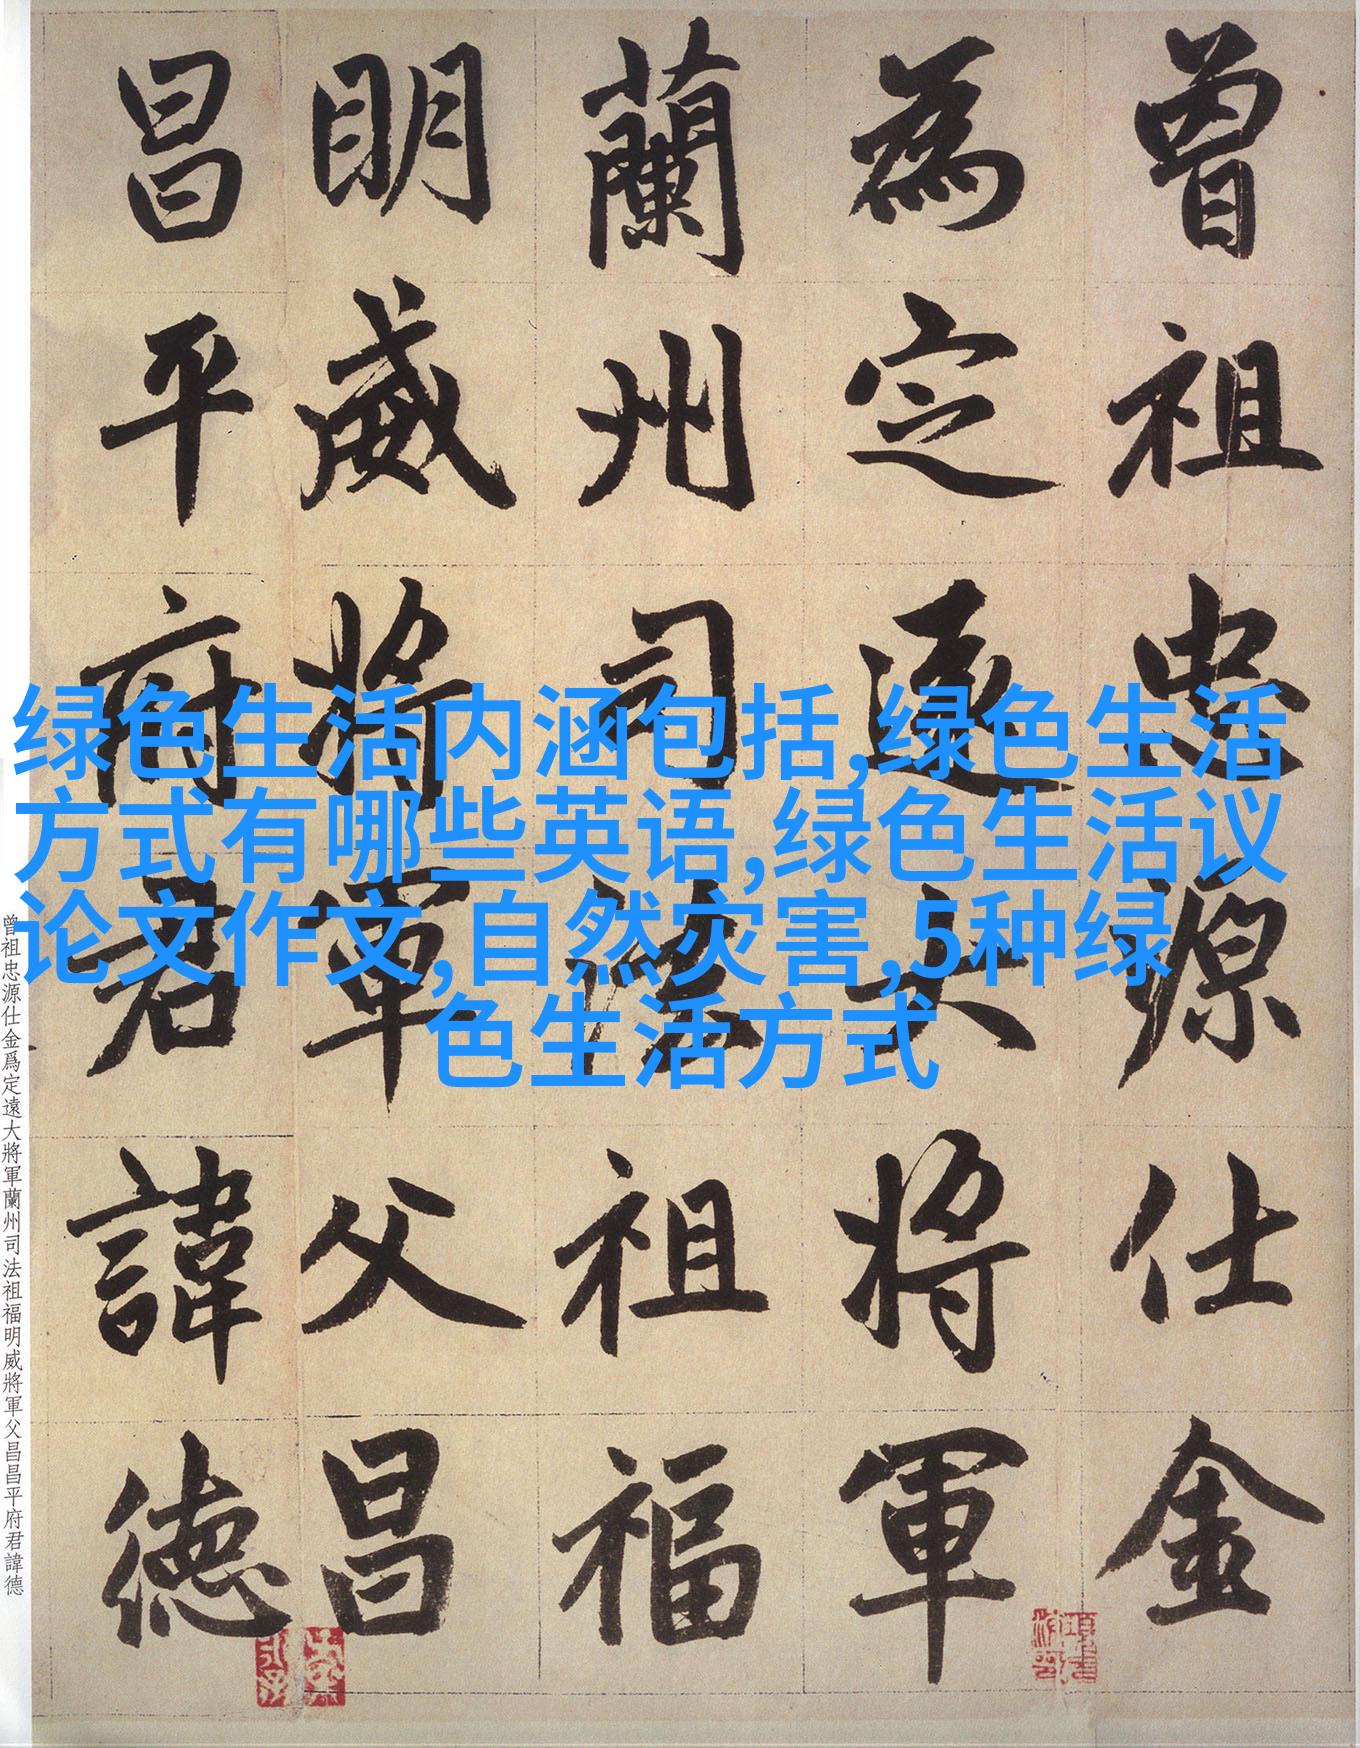 曾祖忠源仕金
為定遠大将軍
蘭州司法祖福
明威将軍父昌
昌平府君諱德
曾祖忠源仕金爲定遠大將軍蘭州司法祖福明威將軍父昌昌平府君諱德
绿色生活内涵包括,绿色生活
方式有哪些英语,绿色生活议
论文作文,自然灾害,5种绿
色生活方式